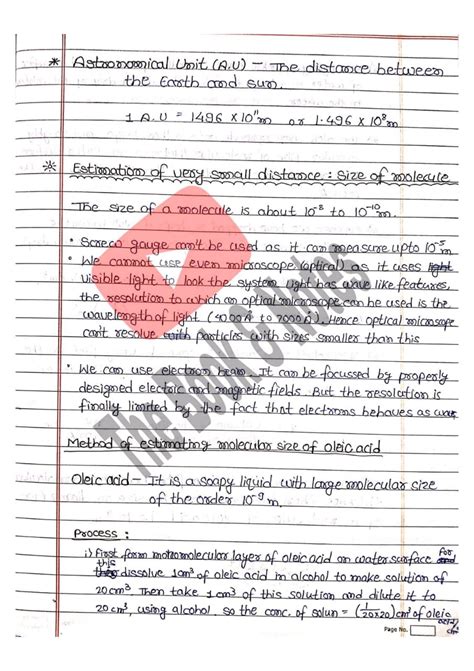 * Astronomical Unit (A.U) – The distance between
the Earth and sun.
1 A.U = 1496 x 10¹¹m or 1.496 x 10⁸m
* Estimation of very small distance : Size of molecule
The size of a molecule is about 10⁻⁸ to 10⁻¹⁰m.
• Screw gauge can't be used as it can measure upto 10⁻⁵m
• We cannot use even microscope (optical) as it uses light
visible light to look the system light has wave like features,
the resolution to which an optical microscope can be used is the
wavelength of light (4000Å to 7000Å). Hence optical microscope
can't resolve with particles with sizes smaller than this
• We can use electron beam. It can be focussed by properly
designed electric and magnetic fields. But the resolution is
finally limited by the fact that electrons behaves as
Method of estimating molecular size of oleic acid
Oleic acid – It is a soapy liquid with large molecular size
of the order 10⁻⁹m.
Process :
i) First form molecular layer of oleic acid on water surface for
this dissolve 1cm³ of oleic acid in alcohol to make solution of
20cm³ Then take 1cm³ of this solution and dilute it to
20cm³, using alcohol. so the conc. of solun = (1/20x20) cm³ of oleic
acid/cm³
Page No.
The Book & Notes